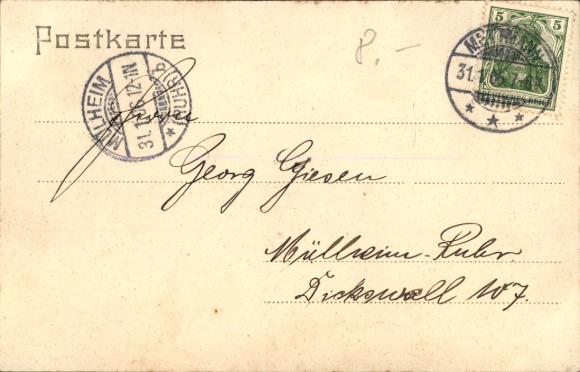 Postkarte
8.-
5 5
DEUTSCHES REICH
31.1.06. 7-8V
MÜLHEIM (RUHR)
31.1.06. 12-1N
Herrn
Georg Giesen
Müllheim-Ruhr
Dickswall 107.